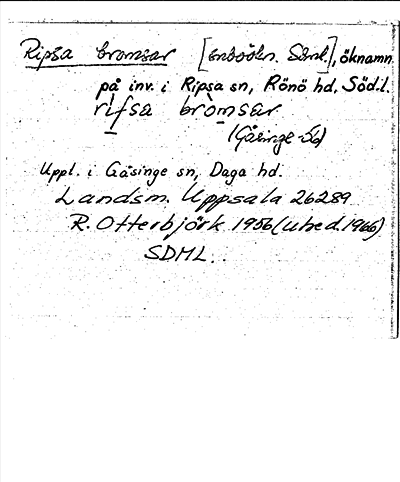 Ripsa bromsar [inbööln. Saml.], öknamn
på inv. i Ripsa sn, Rönö hd, Södl.
ripsa bromsar
(Gåsinge-Dö)
Uppl. i Gåsinge sn, Daga hd.
Landsm. Uppsala 26289
R. Otterbjörk 1956 (uhed. 1966)
SDML.